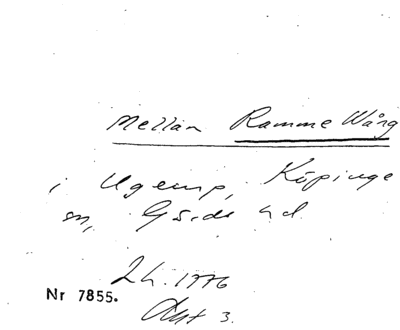 Mellan Ramme Wång
i Ugerup, Köpinge
sn, Gärds hd.
Lh. 1776
Nr 7855.
Akt 3.